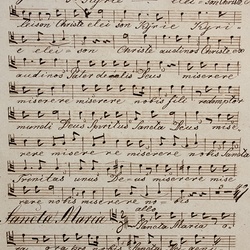 Kyrie eleison Christe
leison Christe elei son Kyrie Kyri
e elei son Christe audi nos Christe ex
audi nos Pater de coelis Deus miserere
miserere miserere nobis fili redemptor
mundi Deus Spiritus Sancta Deus mise
rere mise re re miserere nobis Sancta
Trinitas unus Deus miserere mise
rere nobis miserere no bis
Sancta Maria Sancta Maria o
ra ora